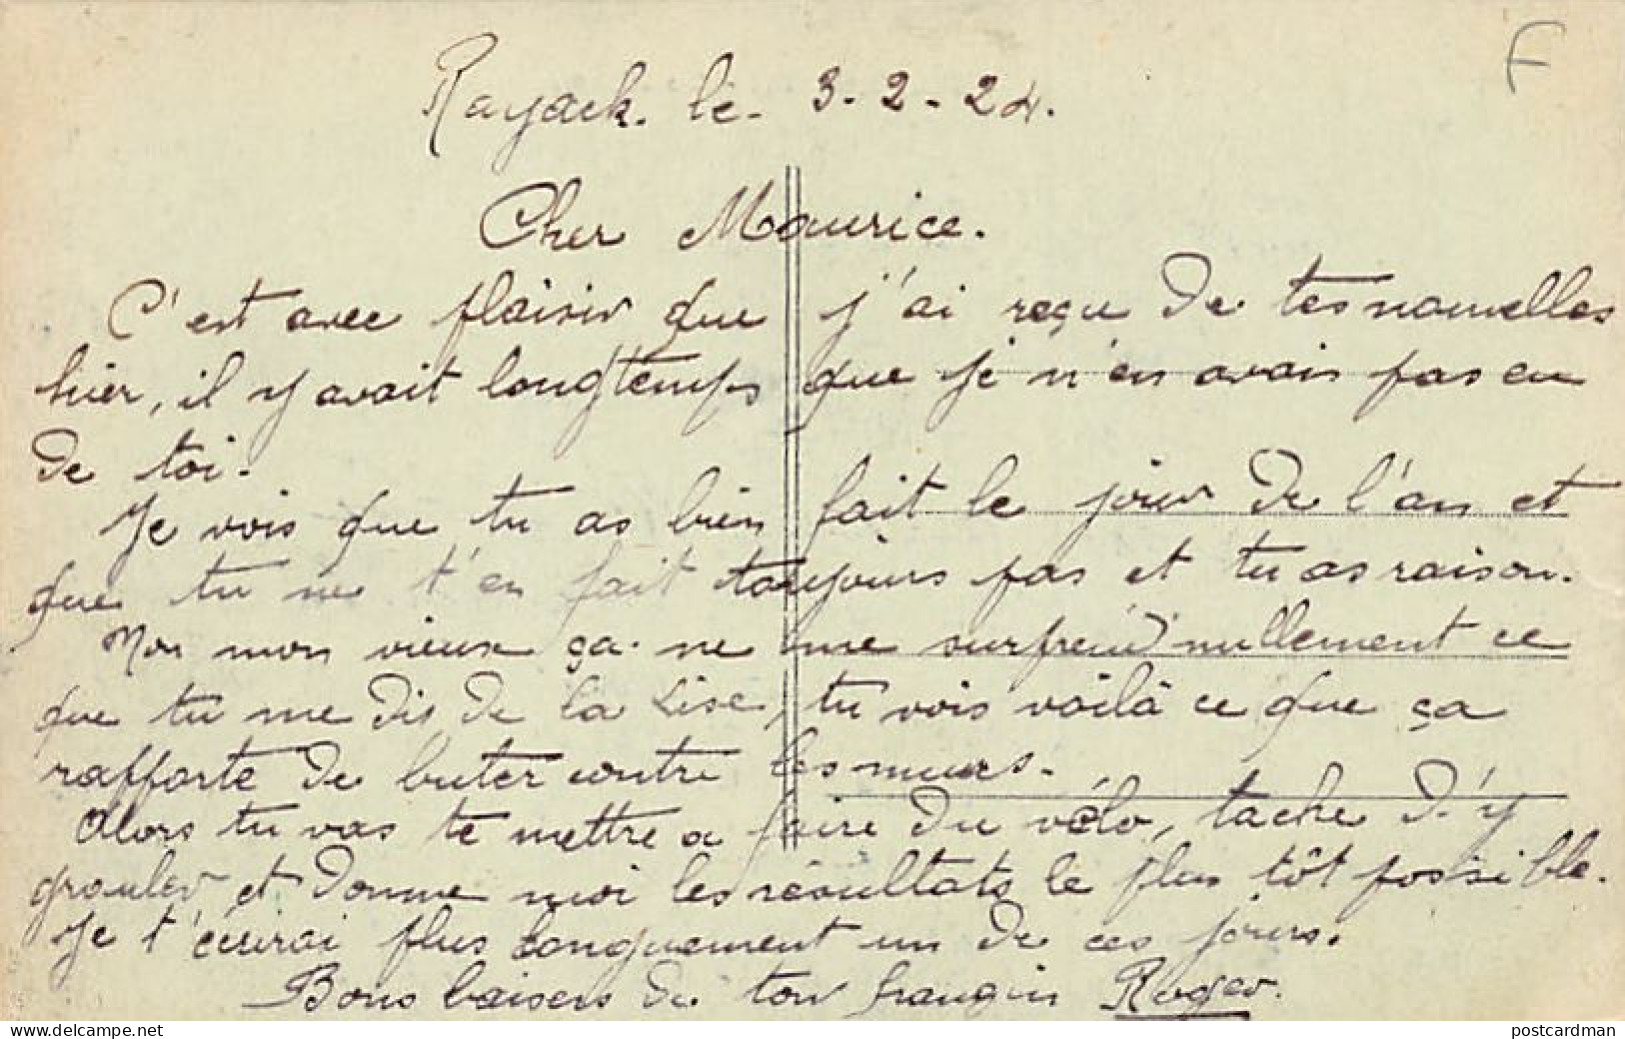 F
Rayack. le. 3-2-24.
Cher Maurice.
C'est avec plaisir que j'ai reçu de tes nouvelles
hier, il y avait longtemps que je n'en avais pas eu
de toi.
Je vois que tu as bien fait le jour de l'an et
que tu ne t'en fait toujours pas et tu as raison.
Non mon vieux ça ne me surprend nullement ce
que tu me dis de la Lise, tu vois voilà ce que ça
rapporte de buter contre les murs.
Alors tu vas te mettre a faire du vélo, tache d'y
grouler et donne moi les résultats le plus tôt possible.
Je t'écrirai plus longuement un de ces jours.
Bons baisers de ton frangin Roger.
delcampe.net
postcardman